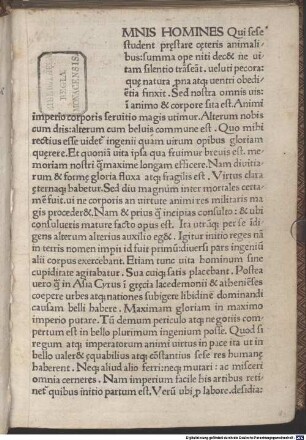 MNIS HOMINES Qui sese
student pręstare cęteris animali
bus:summa ope niti decet ne ui
tam silentio trāseāt. ueluti pecora:
quę natura pna atq; uentri obedi
ētia finxit. Sed nostra omnis uis:
ī animo & corpore sita est. Animi
imperio corporis seruitio magis utimur. Alterum nobis
cum dris: alterum cum beluis commune est. Quo mihi
rectius esse uidet ingenii quam uirum opibus gloriam
quęrere. Et quoniā uita ipsa qua fruimur breuis est. me
moriam nostri q̄maxime longam efficere. Nam diuitia
rum & formę gloria fluxa atq; fragilis est. Virtus clara
ęternaq; habetur. Sed diu magnum inter mortales certa
mē fuit. ui ne corporis an uirtute animi res militaris ma
gis procederet. Nam & prius q̄ incipias consulto: & ubi
consulueris mature facto opus est. Ita utrūq; per se idi
gens alterum alterius auxilio eget. Igitur initio reges nā
in terris nomen impii id fuit primū diuersi pars ingeniū
alii corpus exercebant. Etiam tunc uita hominum sine
cupiditate agitabatur. Sua cuiq; satis placebant. Postea
uero q̄ in Asia Cyrus ī gręcia lacedemonii & atheniēses
coepere urbes atq; nationes subigere libidinē dominandi
causam belli habere. Maximam gloriam in maximo
imperio putare. Tū demum periculo atq; negotiis com
pertum est in bello plurimum ingenium posse. Quod si
regum atq; imperatorum animi uirtus in pace ita ut in
bello ualeret & equabilius atq; cōstantius sese res humanę
haberent. Neq; aliud alio ferri: neq; mutari: ac misceri
omnia cerneres. Nam imperium facile his artibus reti
net quibus initio partum est. Verū ubi p labore. desidia:
BIBLIOTHECA
REGIA
MONACENSIS.